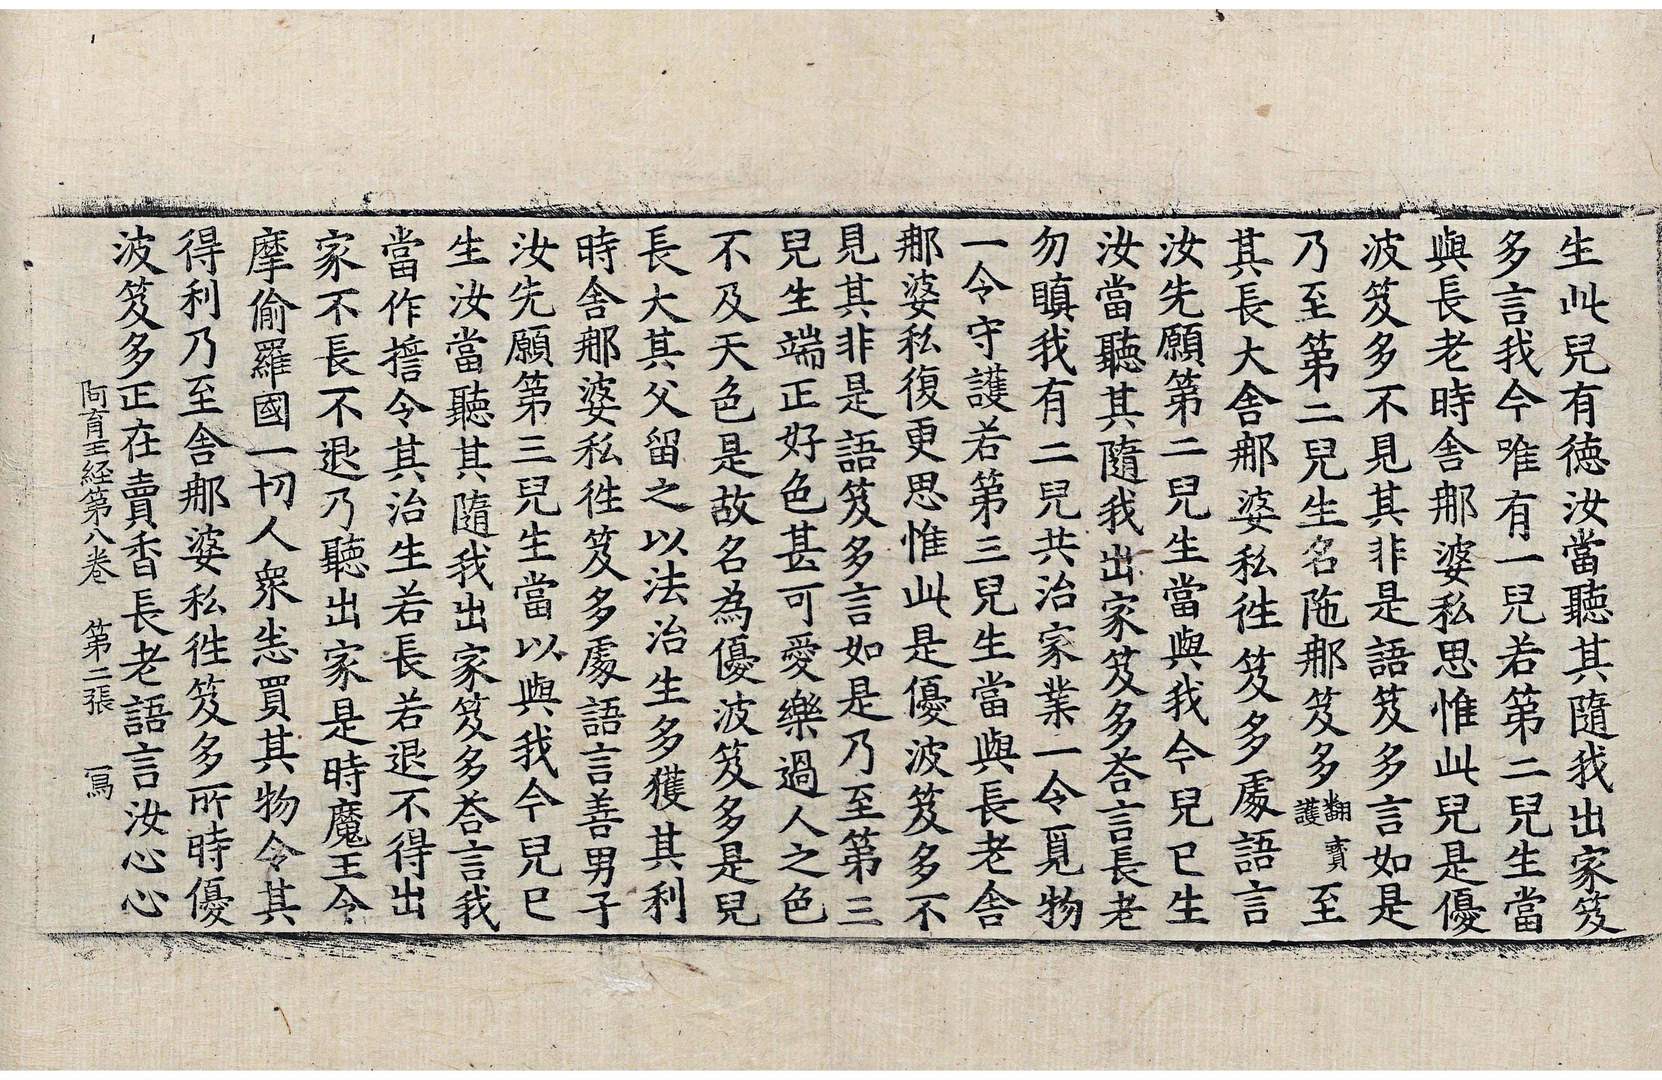 生此兒有徳汝當聽其隨我出家笈
多言我今唯有一兒若第二兒生當
與長老時舍那婆私思惟此兒是優
波笈多不見其非是語笈多言如是
乃至第二兒生名陁那笈多翻寶護至
其長大舍那婆私徃笈多處語言
汝先願第二兒生當與我今兒已生
汝當聽其隨我出家笈多荅言長老
勿瞋我有二兒共治家業一令覓物
一令守護若第三兒生當與長老舍
那婆私復更思惟此是優波笈多不
見其非是語笈多言如是乃至第三
兒生端正好色甚可愛樂過人之色
不及天色是故名為優波笈多是兒
長大其父留之以法治生多獲其利
時舍那婆私徃笈多處語言善男子
汝先願第三兒生當以與我今兒已
生汝當聽其隨我出家笈多荅言我
當作擔令其治生若長若退不得出
家不長不退乃聽出家是時魔王令
摩偷羅國一切人衆恙買其物令其
得利乃至舍那婆私徃笈多所時優
波笈多正在賣香長老語言汝心心
阿育王経第八巻　第二張　寫